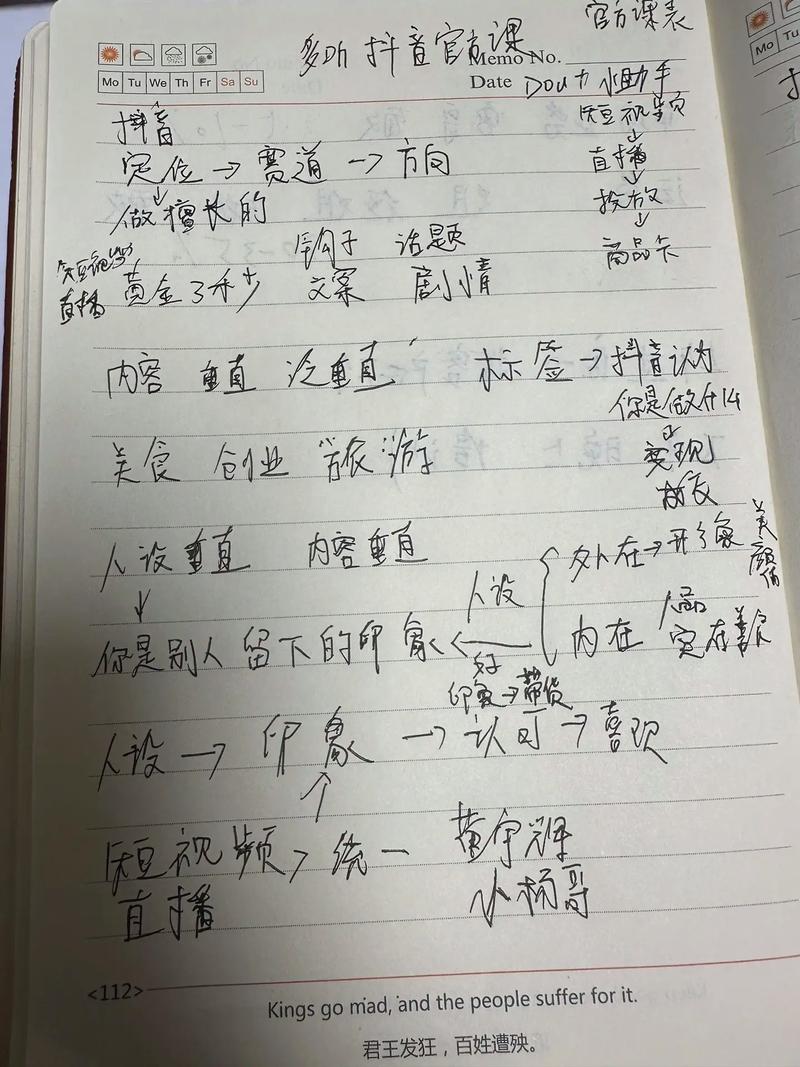 官方课表
多听 抖音官方课
Memo No.
Mo Tu We Th Fr Sa Su
Date DOU 小助手
抖音
短视频
↓
定位 → 赛道 → 方向
直播
↓
↓
做擅长的
投放
↓
钩子 话题
商品卡
短视频
直播 黄金3秒 文案 剧情
内容 垂直 泛垂直 标签 → 抖音认为
你是做什么
↓
美食 创业 旅游
变现
人设垂直 内容垂直
外在→形象
美
颜值
↓
人设
你是别人留下的印象 ←
内在 人品
实在 善良
好
印象→带货
人设 → 印象 → 认可 → 喜欢
↑
短视频 > 统一
直播
小杨哥
<112>
Kings go mad, and the people suffer for it.
君王发狂，百姓遭殃。
Mo
Tu